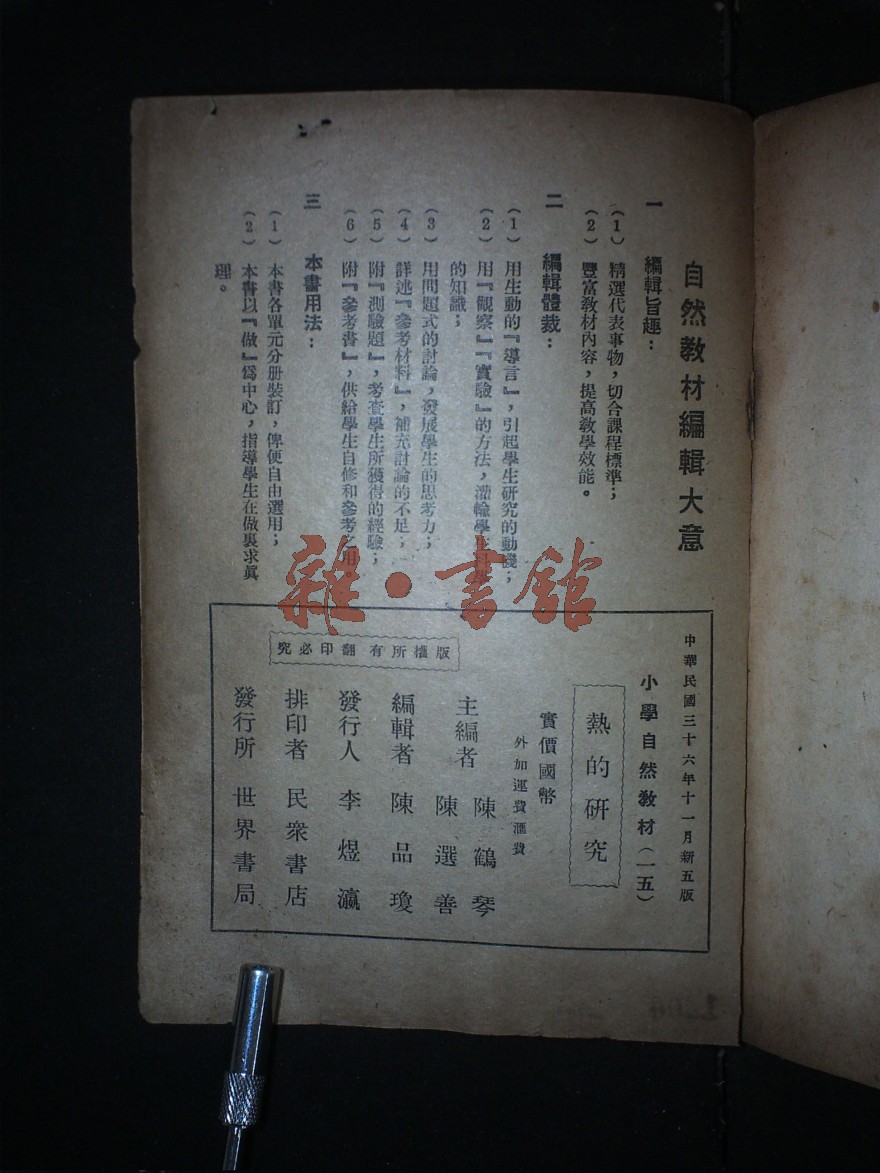 自然教材編輯大意
一　編輯旨趣：
（1）精選代表事物，切合課程標準；
（2）豐富教材內容，提高教學效能。
二　編輯體裁：
（1）用生動的『導言』，引起學生研究的動機；
（2）用『觀察』『實驗』的方法，灌輸學生科學
的知識；
（3）用問題式的討論，發展學生的思考力；
（4）詳述『參考材料』，補充討論的不足；
（5）附『測驗題』，考查學生所獲得的經驗；
（6）附『參考書』，供給學生自修和參考之用
三　本書用法：
（1）本書各單元分册裝訂，俾便自由選用；
（2）本書以『做』爲中心，指導學生在做裏求眞
理。
中華民國三十六年十一月新五版
小學自然教材（一五）
熱的研究
實價國幣
外加運費滙費
主編者　陳鶴琴
陳選善
編輯者　陳品瓊
發行人　李煜瀛
排印者　民衆書店
發行所　世界書局
版權所有翻印必究
雜·書館